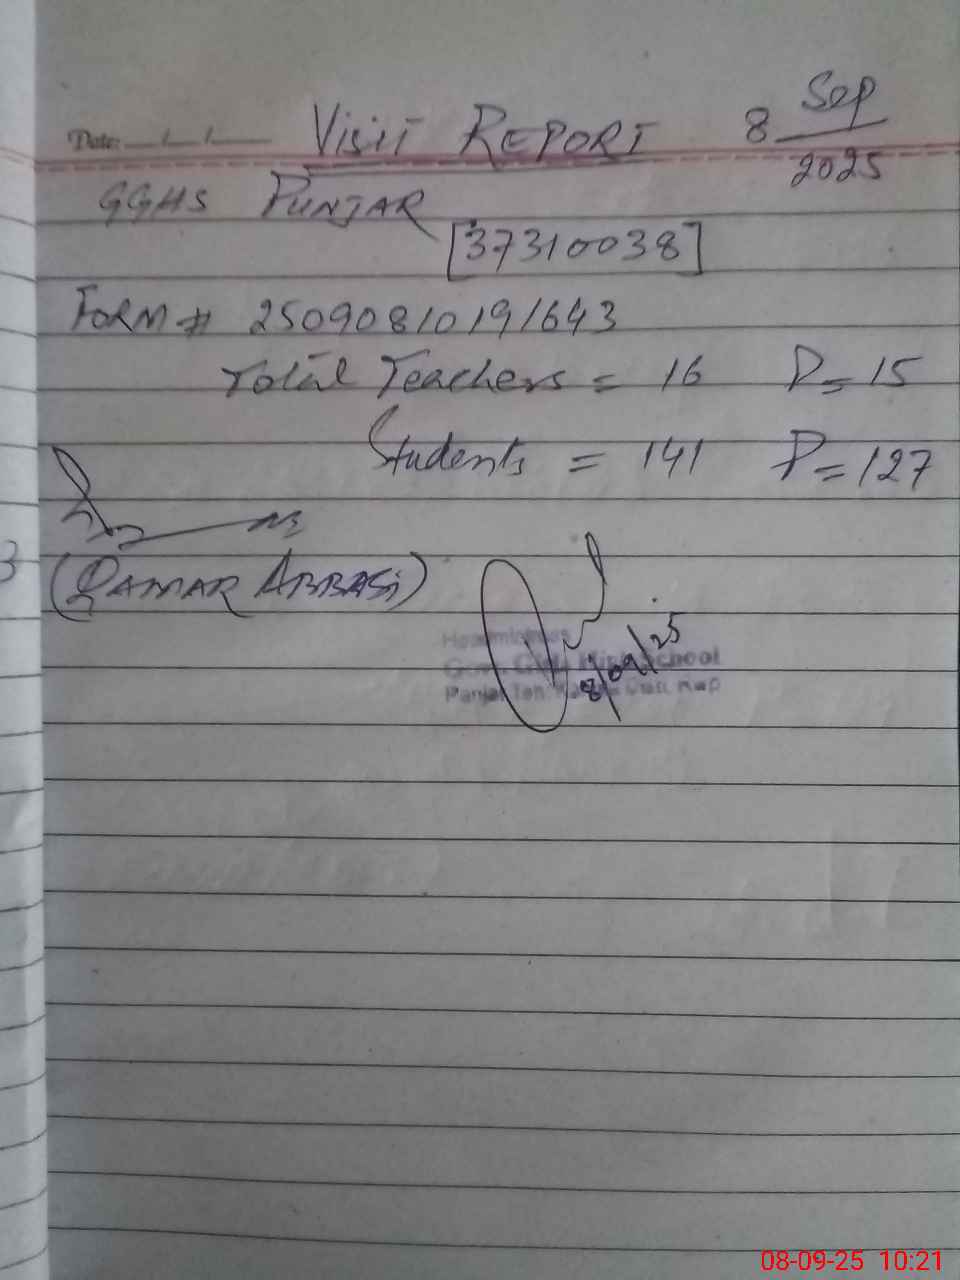 Date: __/__/__ VISIT REPORT 8 Sep
2025
GGHS PUNJAR
[37310038]
FORM # 25090810191643
Total Teachers = 16 P = 15
Students = 141 P = 127
3
(QAMAR ABBASI)
8/09/25
Headmistress
Govt. Girls High School
Panjar Teh.
08-09-25 10:21